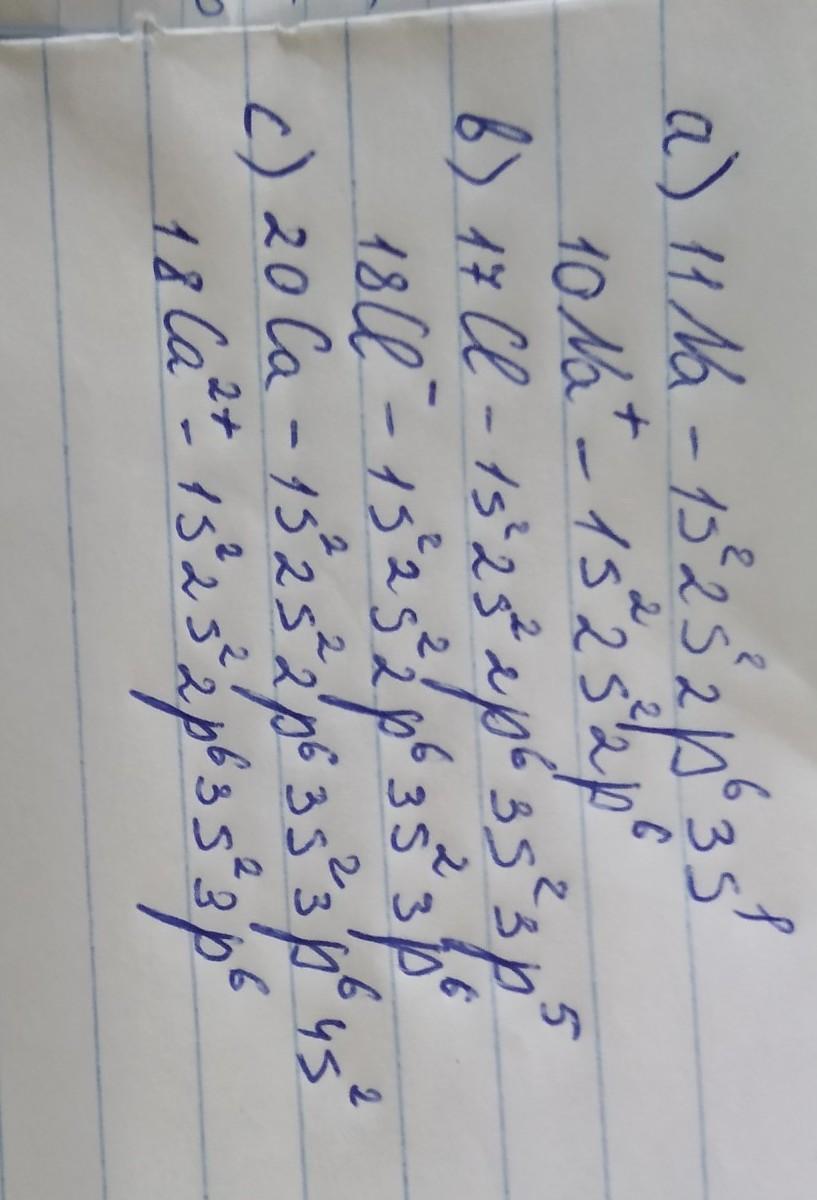 a) 11Na - 1s² 2s² 2p⁶ 3s¹
10Na⁺ - 1s² 2s² 2p⁶
b) 17Cl - 1s² 2s² 2p⁶ 3s² 3p⁵
18Cl⁻ - 1s² 2s² 2p⁶ 3s² 3p⁶
c) 20Ca - 1s² 2s² 2p⁶ 3s² 3p⁶ 4s²
18Ca²⁺ - 1s² 2s² 2p⁶ 3s² 3p⁶